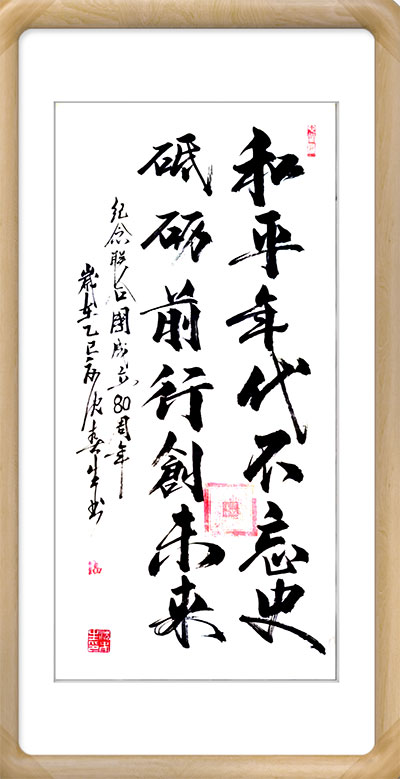 和平年代不忘史
砥砺前行創未来
纪念联合國成立80周年
歲在乙巳